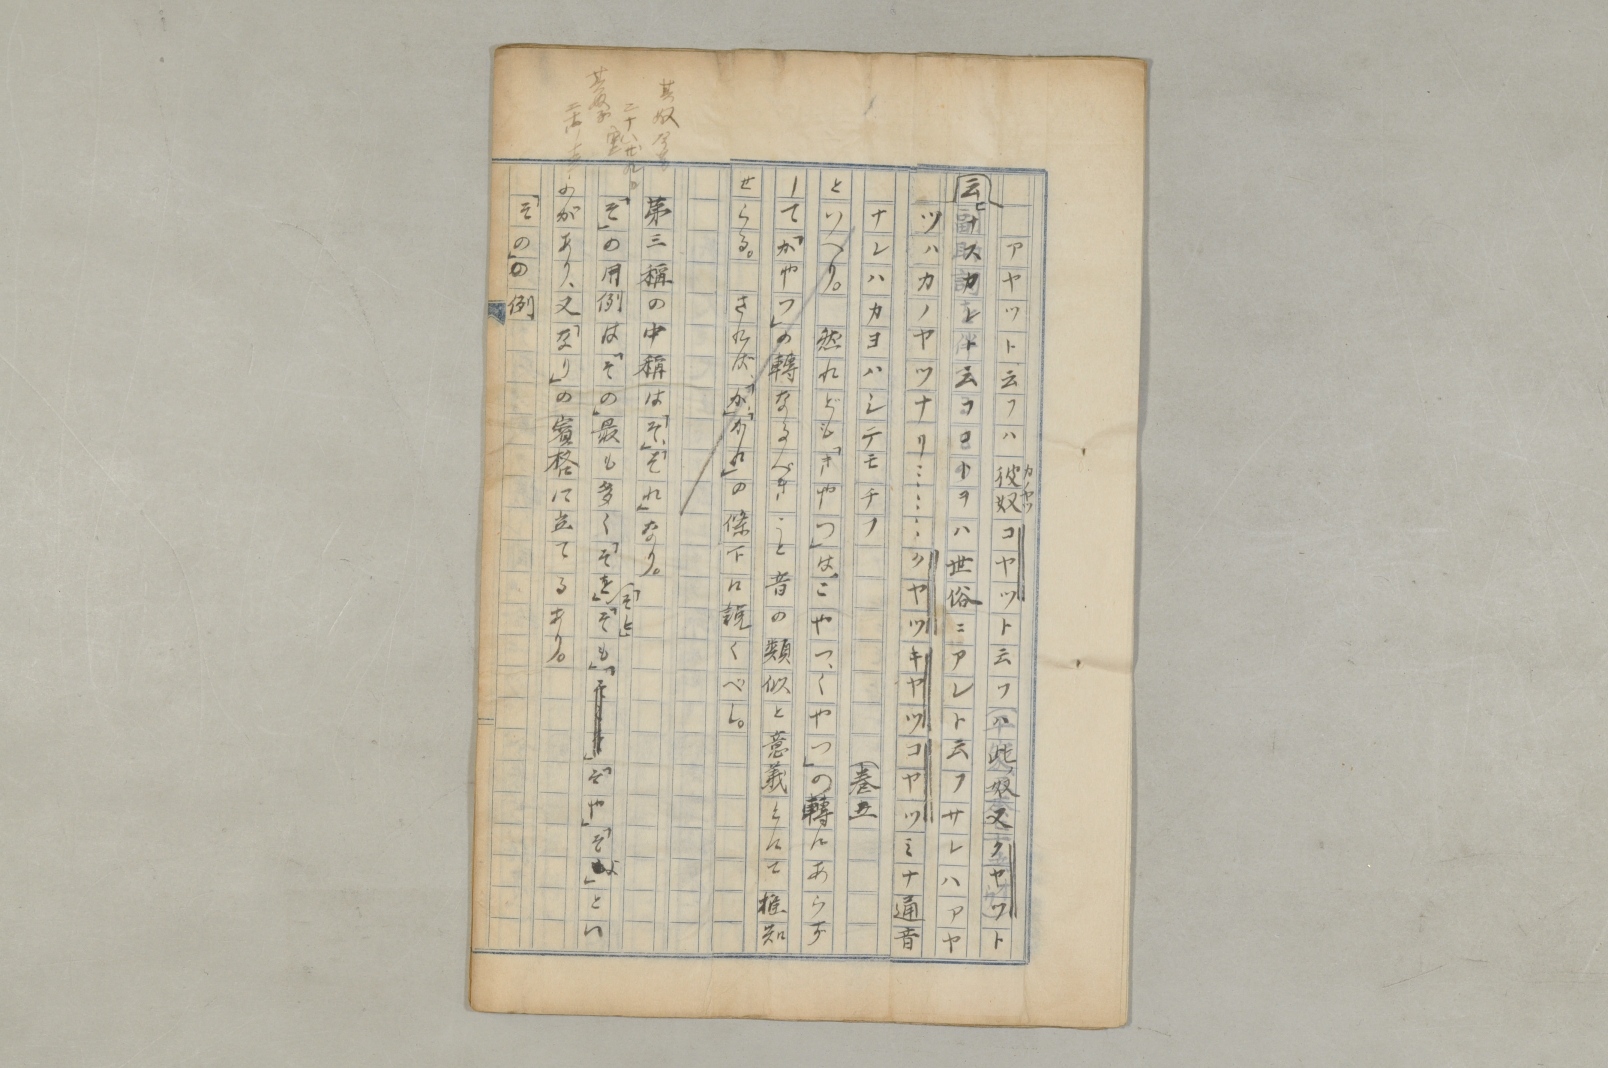 アヤツト云フハ彼奴コヤツト云フハ此奴又クヤツト
カノヤツ
云ヒナスカレト云フコトヲハ世俗ニアレト云フサレハアヤ
ツハカノヤツナリ……クヤツキヤツコヤツミナ通音
ナレハカヨハシテモチフ
(巻五
といへり。然れども「きやつ」は「こやつ、くやつ」の轉にあらず
して「かやつ」の轉なるべきこと音の類似と意義とにて推知
せらる。されば、「か」「かれ」の條下に説くべし。
第三稱の中稱は「そ」、「それ」なり。
「そ」の用例は「その」最も多く「そを」「そも」「そや」「そよ」とい
「そと」
のがあり、又「なり」の賓格に立てるあり。
「その」の例
其奴